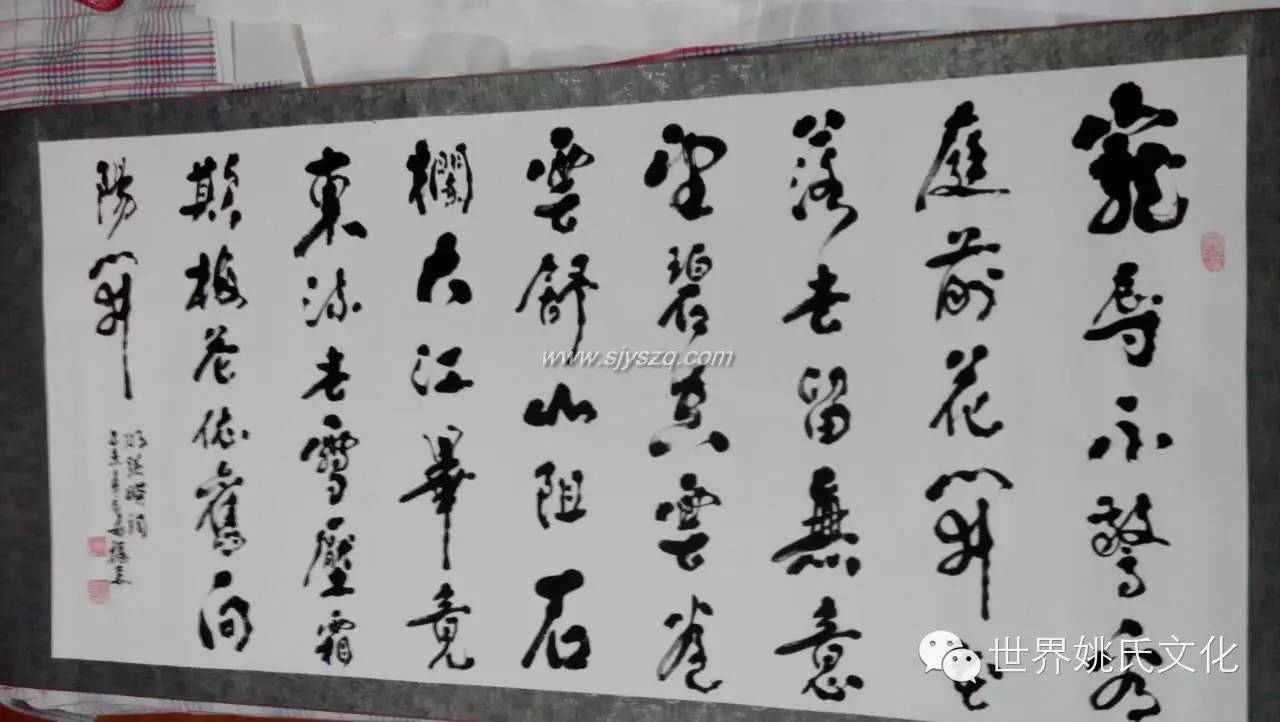 寵辱不驚看
庭前花開花
落去留無意
望碧空雲卷
雲舒山阻石
欄大江畢竟
東流去雪壓霜
欺梅花依舊向
陽開
洪應明詞
www.sjyszq.com
世界姚氏文化